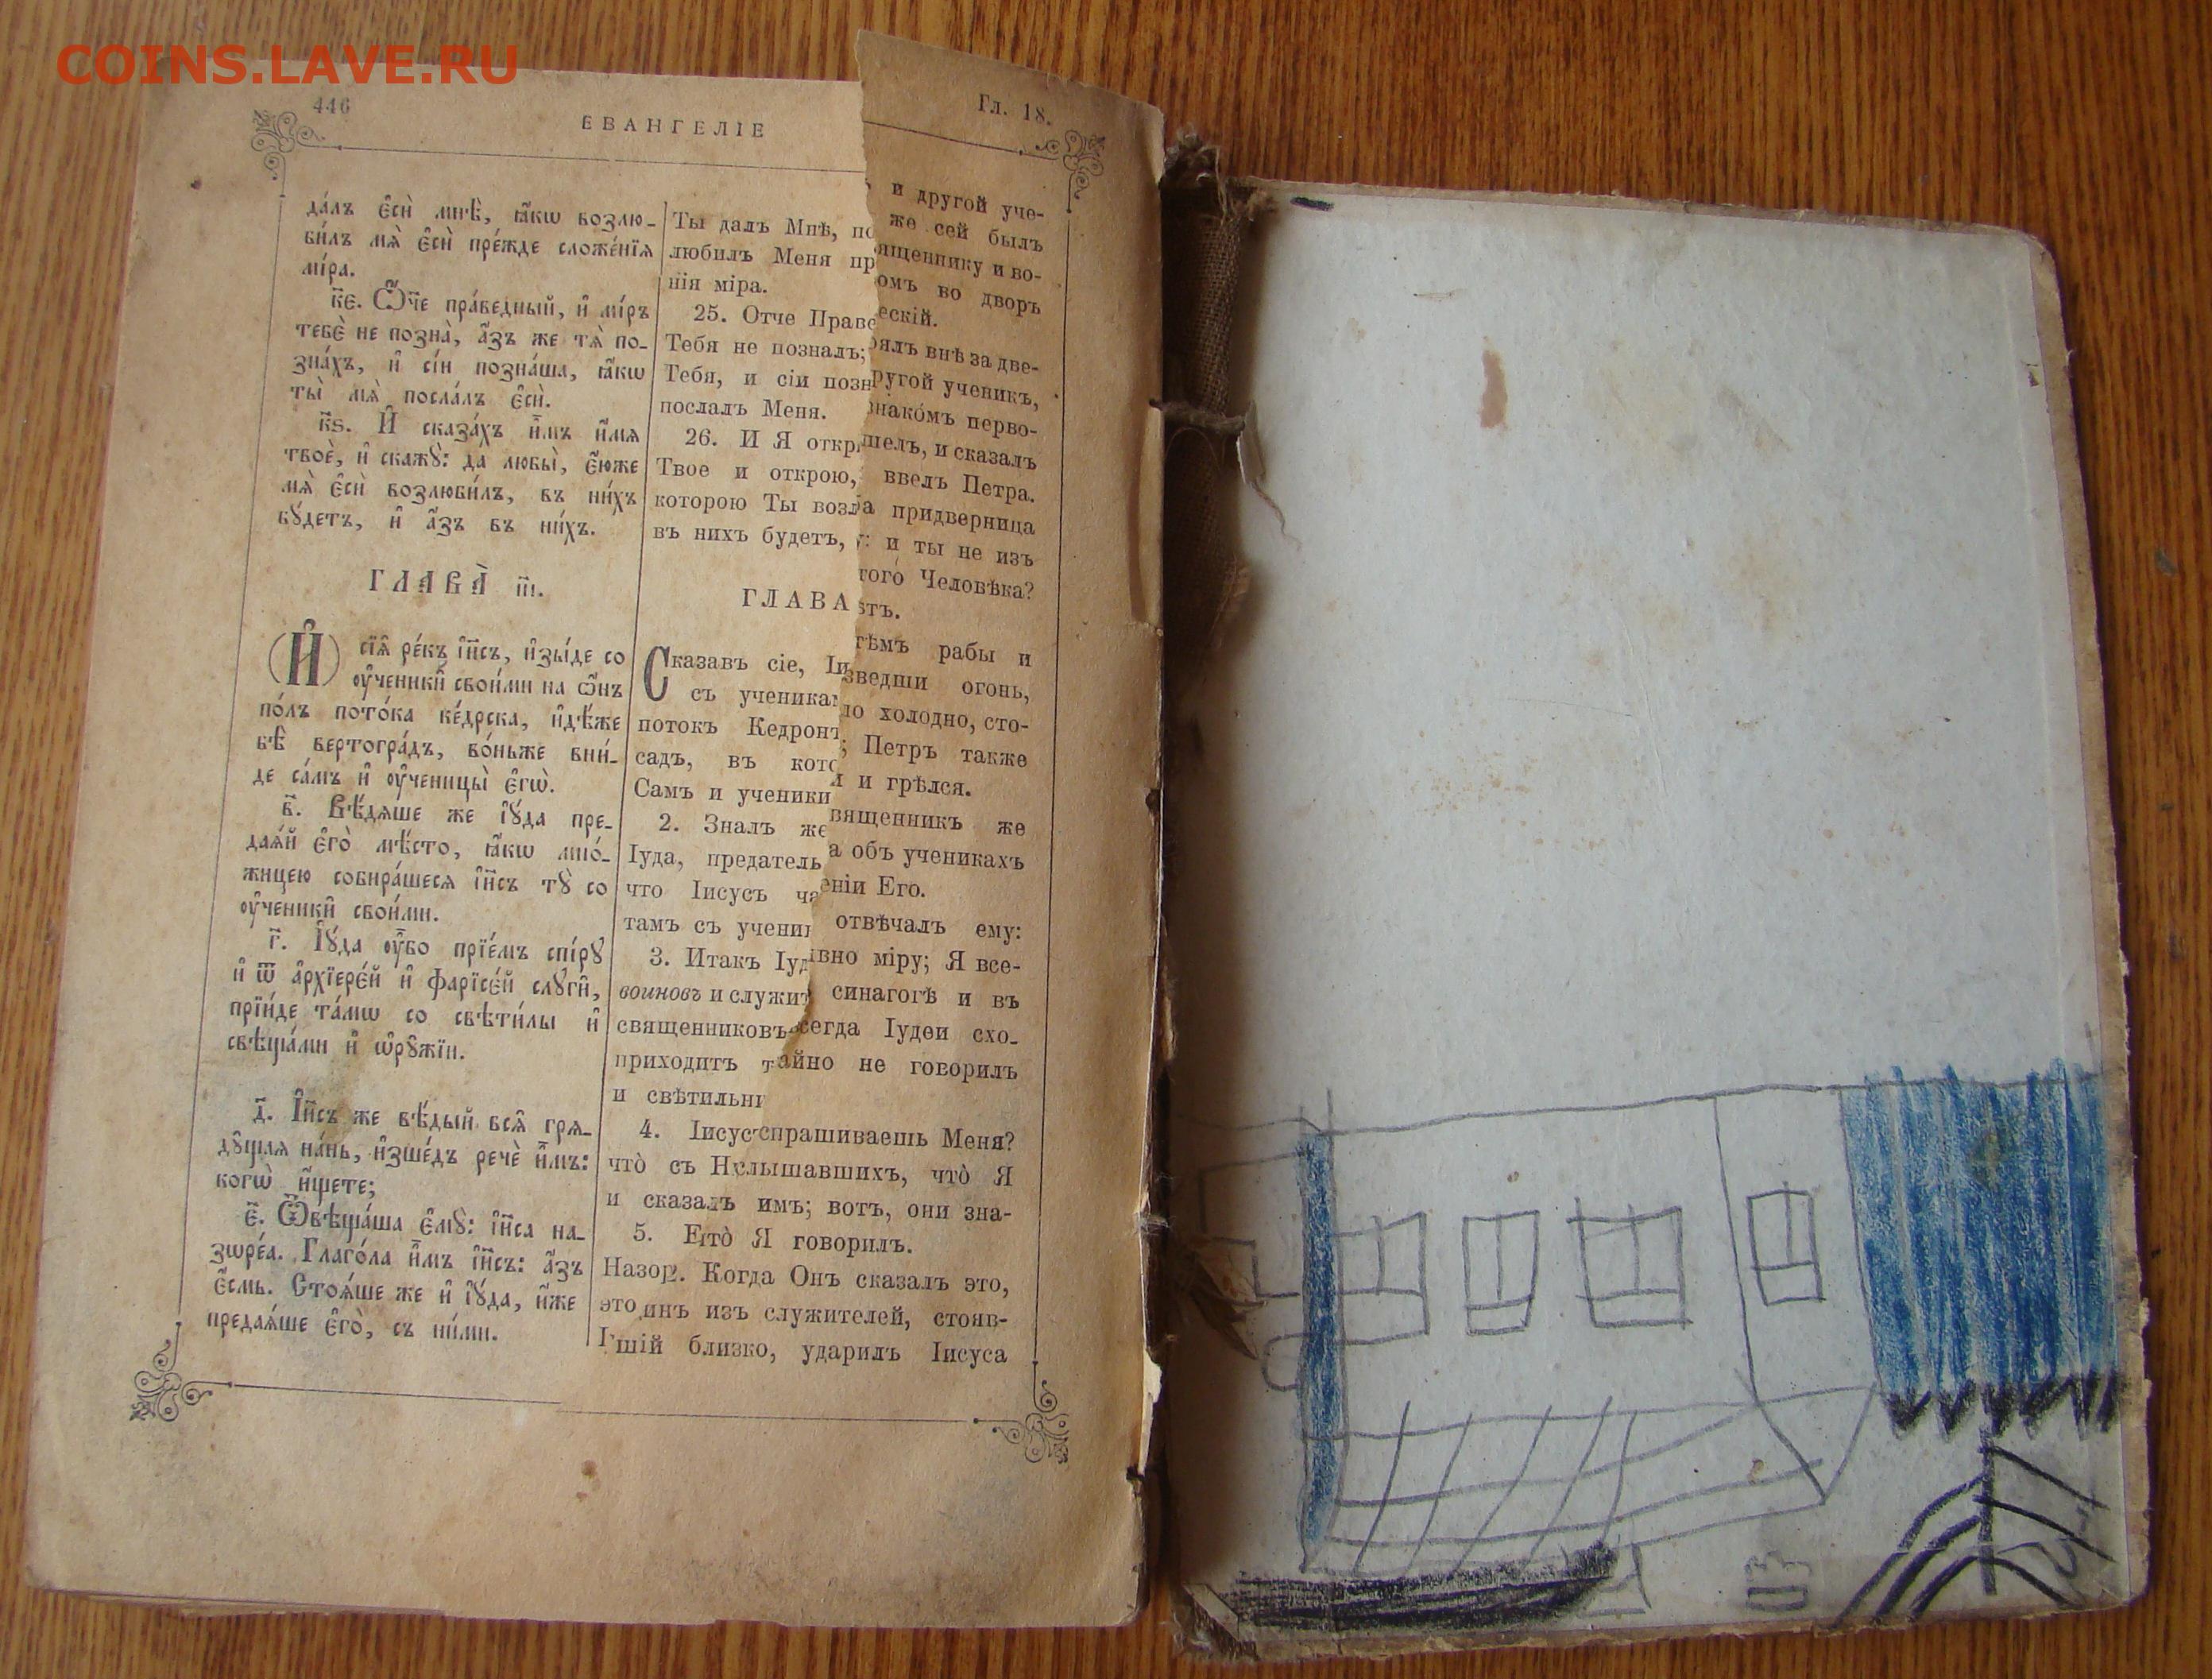 COINS.LAVE.RU
446
ЕВАНГЕЛІЕ
Гл. 18.
да́лъ є҆сѝ мнѣ̀, ꙗ҆́кѡ возлю-
би́лъ мѧ̀ є҆сѝ пре́жде сложе́нїѧ
мі́ра.
к҃є. Ѻ҆́ч҃е пра́ведный, и҆ мі́ръ
тебє̀ не позна̀, а҆́зъ же тѧ̀ по-
зна́хъ, и҆ сі́и позна́ша, ꙗ҆́кѡ
ты̀ мѧ̀ посла́лъ є҆сѝ.
к҃ѕ. И҆ сказа́хъ и҆̀мъ и҆́мѧ
твоѐ, и҆ скажꙋ̀: да любы̀, є҆́юже
мѧ̀ є҆сѝ возлюби́лъ, въ ни́хъ
бꙋ́детъ, и҆ а҆́зъ въ ни́хъ.
ГЛАВА̀ и҃і.
И҆ сїѧ̑ ре́къ і҆и҃съ, и҆зы́де со
ᲂу҆ченики̑ свои́ми на ѻ҆́нъ
по́лъ пото́ка ке́дрска, и҆дѣ́же
бѣ̀ вертогра́дъ, во́ньже вни́-
де са́мъ и҆ ᲂу҆ченицы̀ є҆гѡ̀.
в҃. Вѣ́дѧше же і҆ꙋ́да пре-
даѧ́й є҆го̀ мѣ́сто, ꙗ҆́кѡ мно́-
жицею собира́шесѧ і҆и҃съ тꙋ̀ со
ᲂу҆ченики̑ свои́ми.
г҃. І҆ꙋ́да ᲂу҆̀бо прїе́мъ спі́рꙋ
и҆ ѿ а҆рхїерє́й и҆ фарїсє́й слꙋги̑,
прїи́де та́мѡ со свѣти́лы и҆
свѣща́ми и҆ ѻ҆рꙋ́жїи.
д҃. І҆и҃съ же вѣ́дый всѧ̑ грѧ-
дꙋ̑щаѧ на́нь, и҆зше́дъ речѐ и҆̀мъ:
когѡ̀ и҆́щете;
є҃. Ѿвѣща́ша є҆мꙋ̀: і҆и҃са на-
зѡре́а. Глаго́ла и҆̀мъ і҆и҃съ: а҆́зъ
є҆́смь. Стоѧ́ше же и҆ і҆ꙋ́да, и҆́же
предаѧ́ше є҆го̀, съ ни́ми.
Ты далъ Мнѣ, по
любилъ Меня пр
нія міра.
25. Отче Праве
Тебя не позналъ;
Тебя, и сіи позн
послалъ Меня.
26. И Я откры
Твое и открою,
которою Ты возл
въ нихъ будетъ,
ГЛАВА
Сказавъ сіе, Іи
съ ученика
потокъ Кедрон
садъ, въ кото
Самъ и ученики
2. Зналъ же
Іуда, предатель
что Іисусъ ча
тамъ съ учени
3. Итакъ Іуд
воиновъ и служит
священниковъ
приходитъ т
и свѣтильни
4. Іисус
что̀ съ Н
и сказалъ
5. Е
Назор
это
и другой уче-
же сей былъ
ященнику и во-
омъ во дворъ
ескій.
оялъ внѣ за две-
ругой ученикъ,
знако́мъ перво-
шелъ, и сказалъ
ввелъ Петра.
а придверница
у: и ты не изъ
того́ Человѣка?
ѣтъ.
тѣмъ рабы и
зведши огонь,
ло холодно, сто-
; Петръ также
и грѣлся.
вященникъ же
а объ ученикахъ
еніи Его.
отвѣчалъ ему:
явно міру; Я все-
синагогѣ и въ
сегда Іудеи схо-
айно не говорилъ
спрашиваешь Меня?
слышавшихъ, что̀ Я
имъ; вотъ, они зна-
что̀ Я говорилъ.
Когда Онъ сказалъ это,
инъ изъ служителей, стояв-
шій близко, ударилъ Іисуса
03